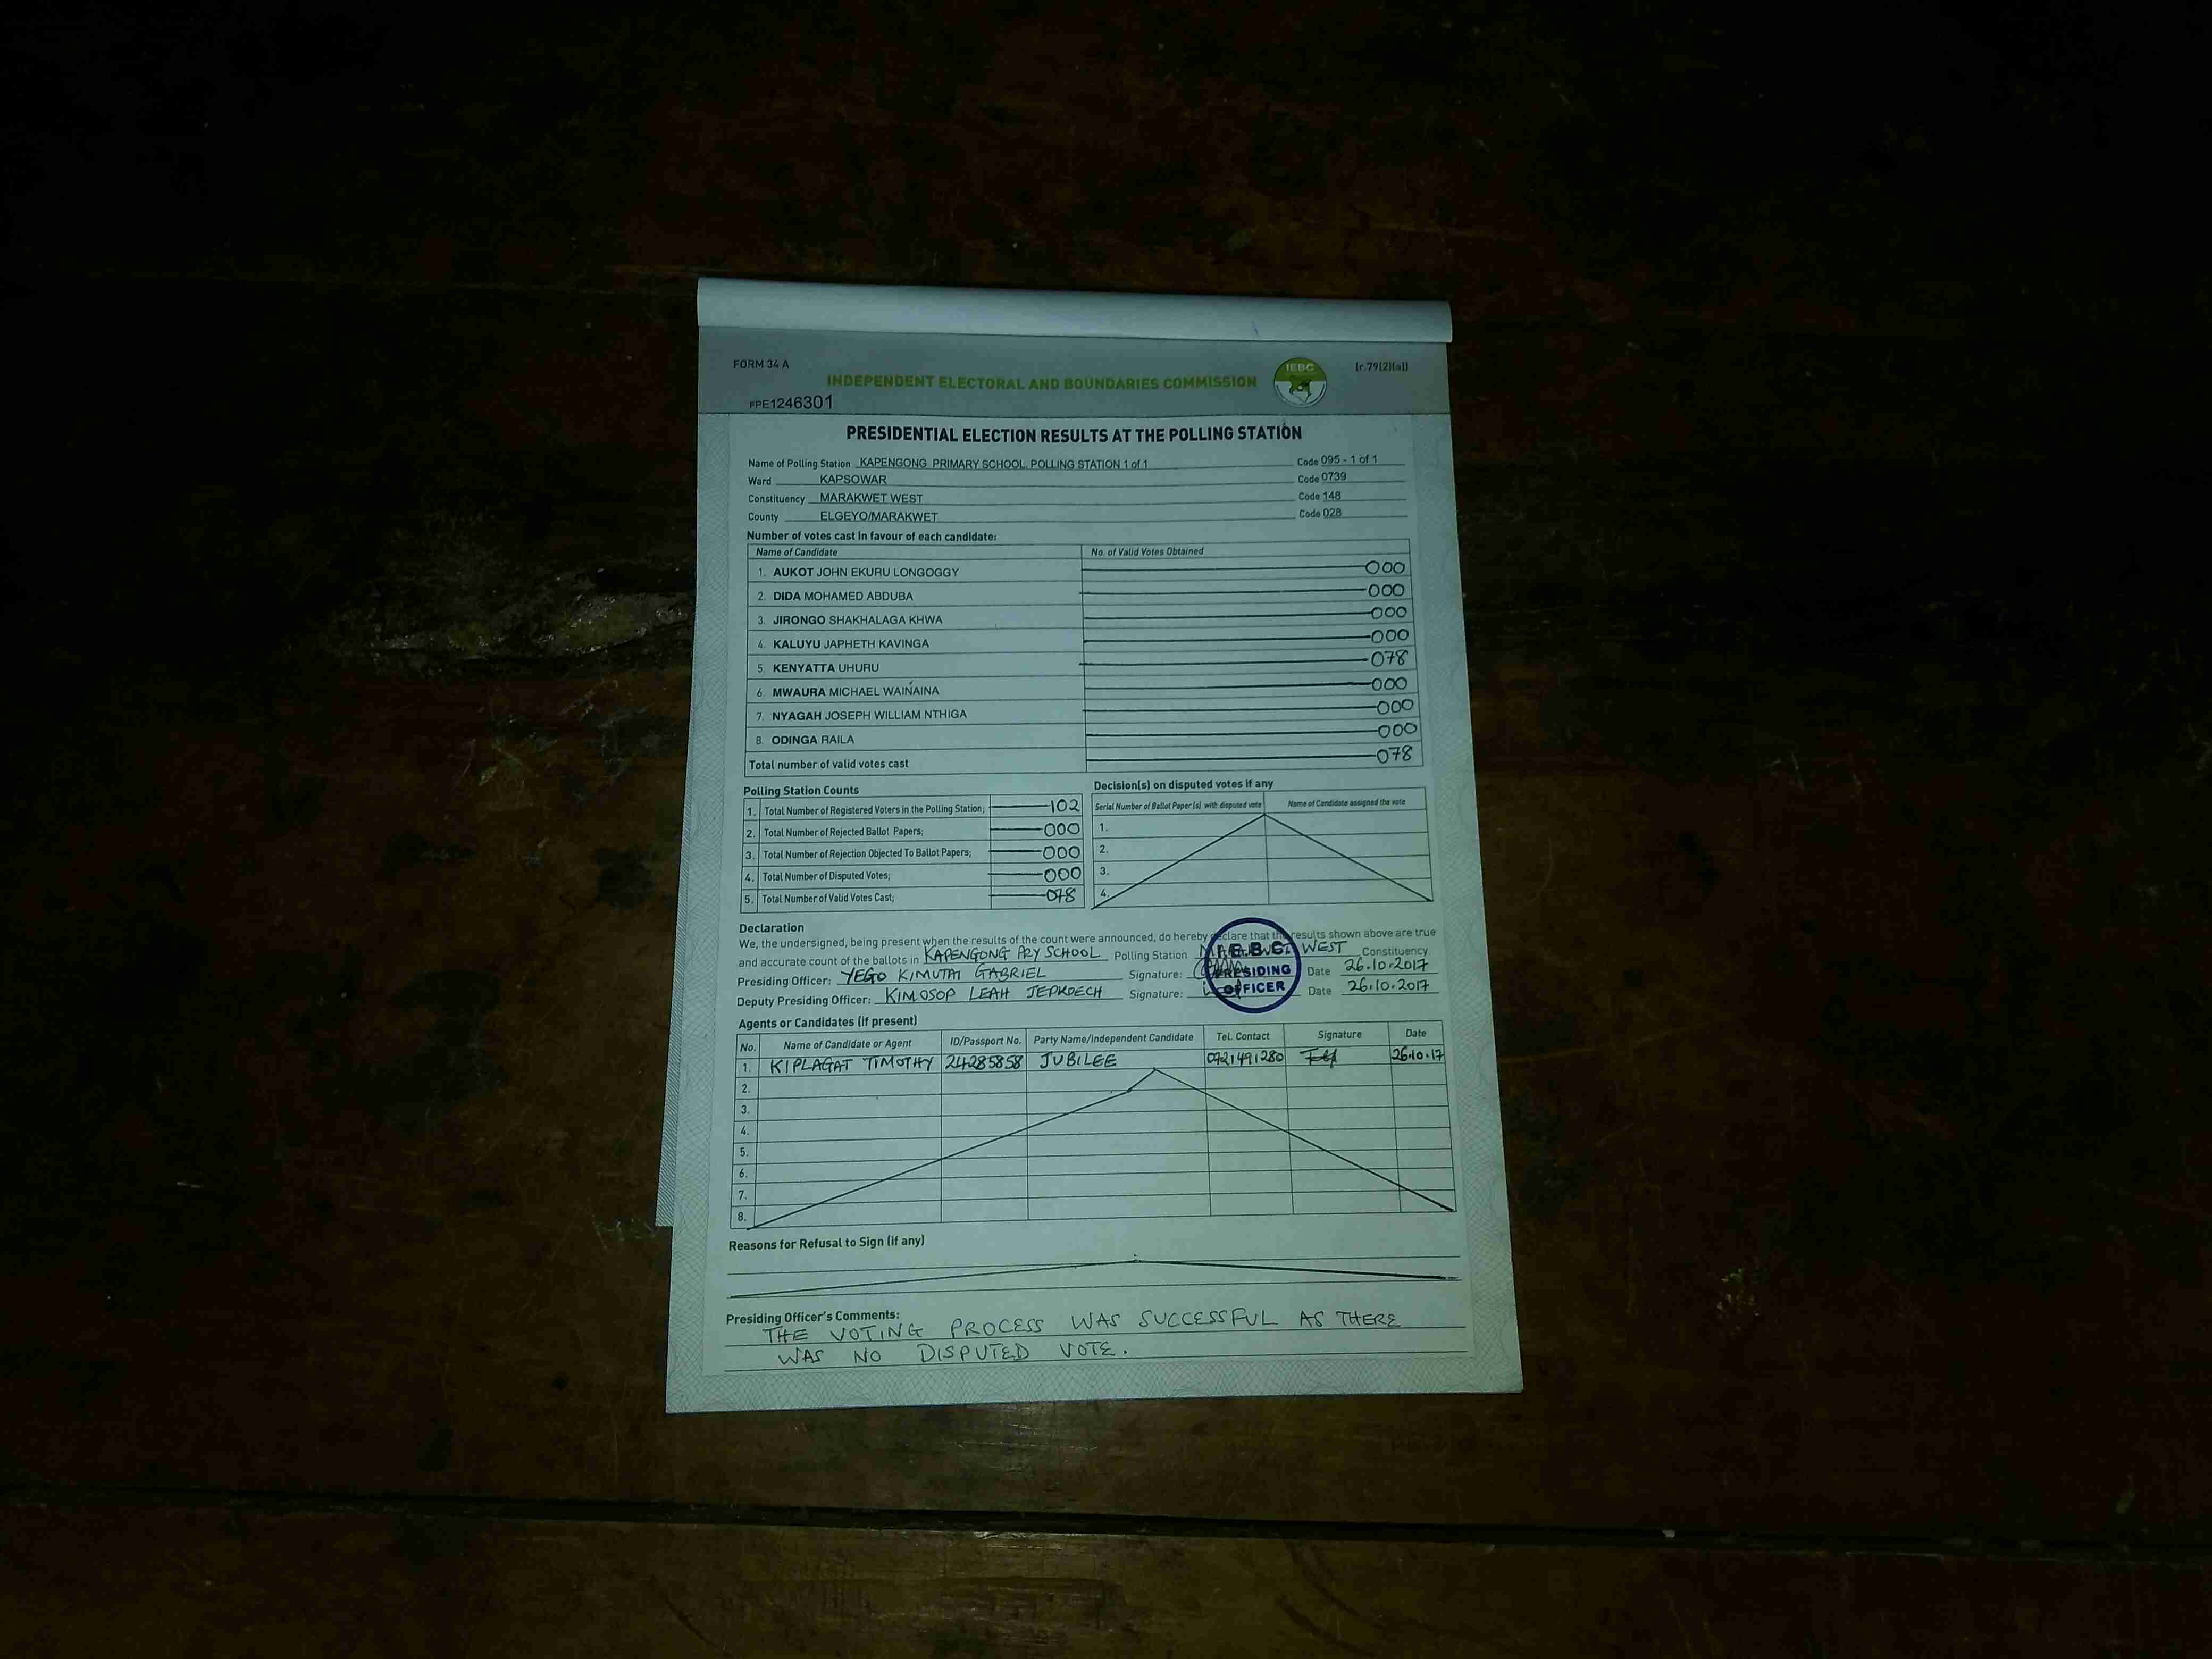 FORM 34 A
IEBC
(r.79(2)(a))
INDEPENDENT ELECTORAL AND BOUNDARIES COMMISSION
FPE1246301
PRESIDENTIAL ELECTION RESULTS AT THE POLLING STATION
Name of Polling Station KAPENGONG PRIMARY SCHOOL. POLLING STATION 1 of 1 Code 095 - 1 of 1
Ward KAPSOWAR Code 0739
Constituency MARAKWET WEST Code 148
County ELGEYO/MARAKWET Code 028
Number of votes cast in favour of each candidate:
Name of Candidate No. of Valid Votes Obtained
1. AUKOT JOHN EKURU LONGOGGY 000
2. DIDA MOHAMED ABDUBA 000
3. JIRONGO SHAKHALAGA KHWA 000
4. KALUYU JAPHETH KAVINGA 000
5. KENYATTA UHURU 078
6. MWAURA MICHAEL WAINAINA 000
7. NYAGAH JOSEPH WILLIAM NTHIGA 000
8. ODINGA RAILA 000
Total number of valid votes cast 078
Polling Station Counts
1. Total Number of Registered Voters in the Polling Station; 102
2. Total Number of Rejected Ballot Papers; 000
3. Total Number of Rejection Objected To Ballot Papers; 000
4. Total Number of Disputed Votes; 000
5. Total Number of Valid Votes Cast; 078
Decision(s) on disputed votes if any
Serial Number of Ballot Paper (s) with disputed vote Name of Candidate assigned the vote
1.
2.
3.
4.
Declaration
We, the undersigned, being present when the results of the count were announced, do hereby declare that the results shown above are true
and accurate count of the ballots in KAPENGONG PRY SCHOOL Polling Station WEST Constituency
Presiding Officer: YEGO KIMUTAI GABRIEL Signature: Date 26.10.2017
Deputy Presiding Officer: KIMOSOP LEAH JEPKOECH Signature: Date 26.10.2017
I.E.B.C.
PRESIDING
OFFICER
Agents or Candidates (if present)
No. Name of Candidate or Agent ID/Passport No. Party Name/Independent Candidate Tel. Contact Signature Date
1. KIPLAGAT TIMOTHY 24285858 JUBILEE 0721491280 26.10.17
2.
3.
4.
5.
6.
7.
8.
Reasons for Refusal to Sign (if any)
Presiding Officer's Comments:
THE VOTING PROCESS WAS SUCCESSFUL AS THERE
WAS NO DISPUTED VOTE.